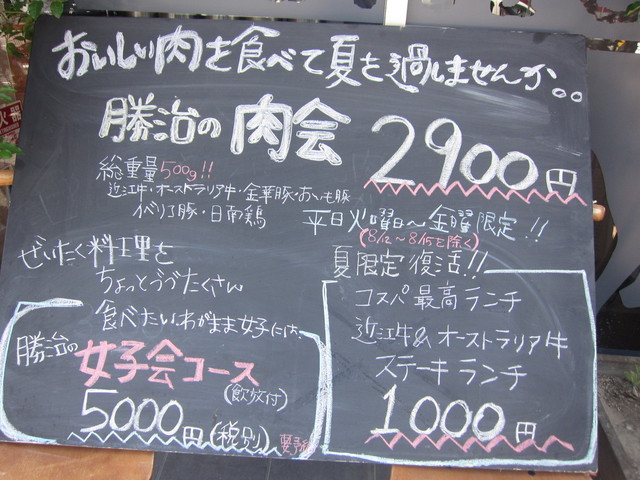 おいしい肉を食べて夏を過しませんか。。
勝治の肉会 2900円
総重量500g!!
近江牛・オーストラリア牛・金華豚・おいも豚
イベリコ豚・日南鶏
平日火曜日〜金曜限定!!
(8/12〜8/15を除く)
ぜいたく料理を
ちょっとづづたくさん
食べたいわがまま女子には、
勝治の
女子会コース
(飲放付)
5000円(税別)
要予約
夏限定復活!!
コスパ最高ランチ
近江牛&オーストラリア牛
ステーキランチ
1000円